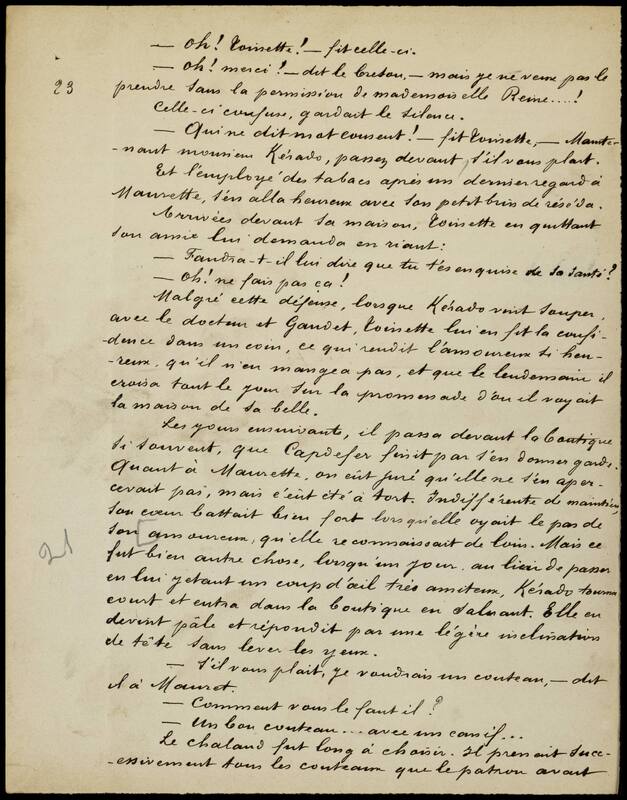 — Oh! Toinette! — fit celle-ci.
— Oh! merci! — dit le breton, — mais je ne veux pas le
23
prendre sans la permission de mademoiselle Reine....!
Celle-ci confuse, gardait le silence.
— Qui ne dit mot consent! — fit Toinette, — Mainte-
-nant monsieur Kérado, passez devant, s'il vous plait.
Et l'employé des tabacs après un dernier regard à
Maurette, s'en alla heureux avec son petit brin de réséda.
Arrivées devant sa maison, Toinette en quittant
son amie lui demanda en riant:
— Faudra-t-il lui dire que tu t'es enquise de sa santé?
— Oh! ne fais pas ça!
Malgré cette défense, lorsque Kérado vint souper,
avec le docteur et Gaudet, Toinette lui en fit la confi-
-dence dans un coin, ce qui rendit l'amoureux si heu-
-reux, qu'il n'en mangea pas, et que le lendemain il
croisa tout le jour sur la promenade d'où il voyait
la maison de sa belle.
Les jours ensuivants, il passa devant la boutique
si souvent, que Capdefer finit par s'en donner garde.
Quant à Maurette, on eût juré qu'elle ne s'en aper-
cevait pas, mais c'eût été à tort. Indifférente de maintien,
son cœur battait bien fort lorsqu'elle oyait le pas de
21
son amoureux, qu'elle reconnaissait de loin. Mais ce
fut bien autre chose, lorsqu'un jour, au lieu de passer
en lui jetant un coup d'œil très amiteux, Kérado tourna
court et entra dans la boutique en saluant. Elle en
devint pâle et répondit par une légère inclination
de tête sans lever les yeux.
— S'il vous plait, je voudrais un couteau, — dit
il à Mauret.
— Comment vous le faut il?
— Un bon couteau... avec un canif...
Le chaland fut long à choisir. Il prenait succ-
-essivement tous les couteaux que le patron avait